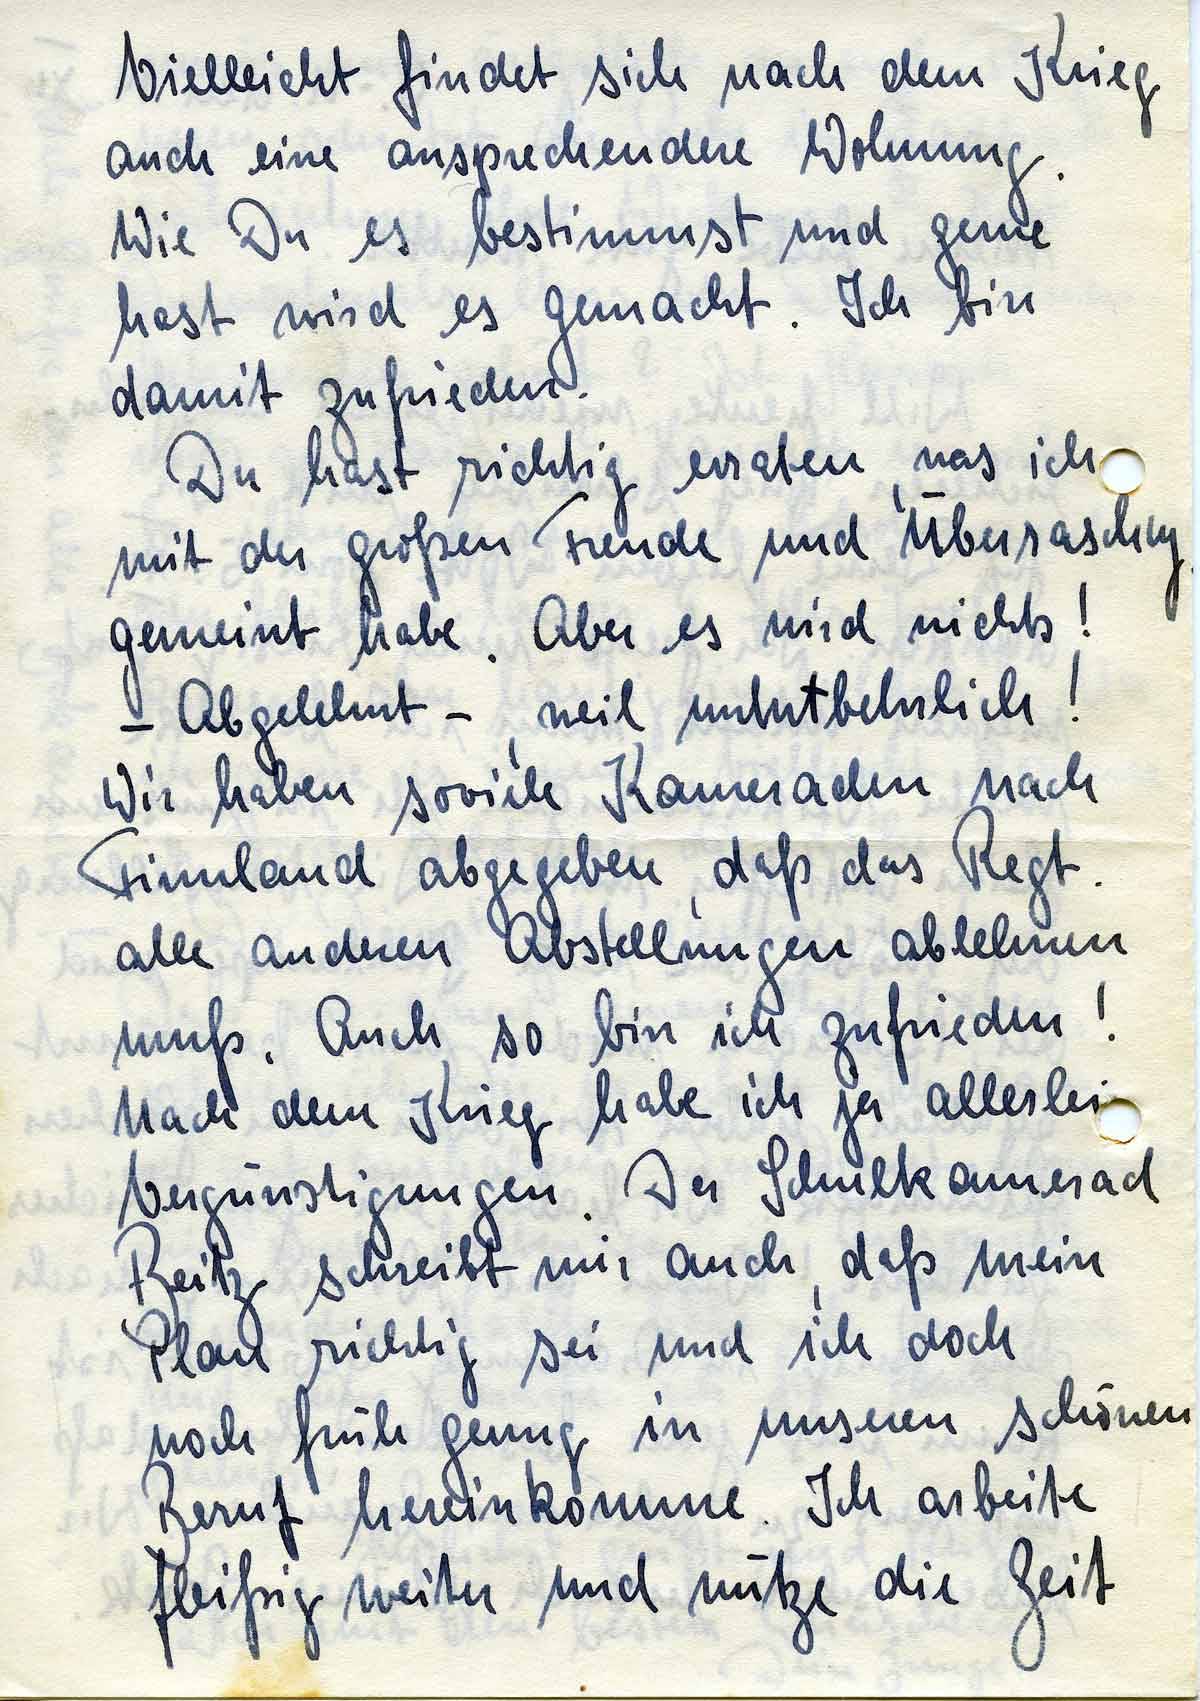 Vielleicht findet sich nach dem Krieg
auch eine ansprechendere Wohnung.
Wie Du es bestimmst und gerne
hast wird es gemacht. Ich bin
damit zufrieden.
Du hast richtig erraten, was ich
mit der großen Freude und Überraschung
gemeint habe. Aber es wird nichts!
– Abgelehnt –, weil unentbehrlich!
Wir haben soviele Kameraden nach
Finnland abgegeben, daß das Regt.
alle anderen Abstellungen ablehnen
muß. Auch so bin ich zufrieden!
Nach dem Krieg habe ich ja allerlei
Vergünstigungen. Der Schulkamerad
Reitz schreibt mir auch, daß mein
Plan richtig sei und ich doch
noch früh genug in unseren schönen
Beruf hereinkomme. Ich arbeite
fleißig weiter und nütze die Zeit